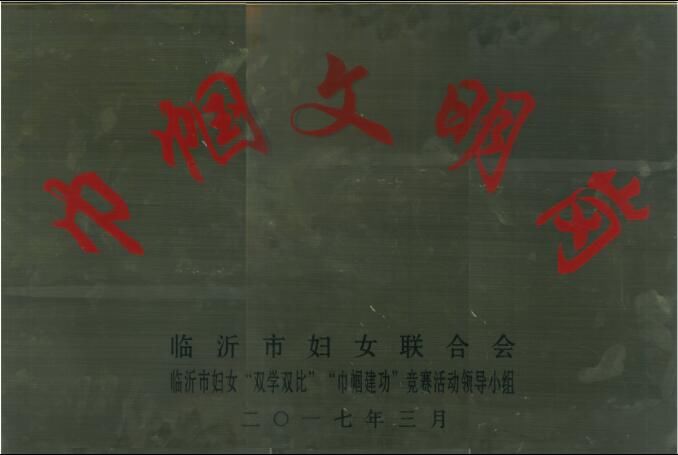 巾帼文明岗
临沂市妇女联合会
临沂市妇女“双学双比”“巾帼建功”竞赛活动领导小组
二〇一七年三月